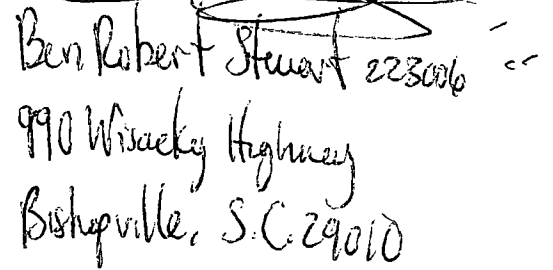 Ben Robert Stewart 223006
990 Wisacky Highway
Bishopville, S.C. 29010